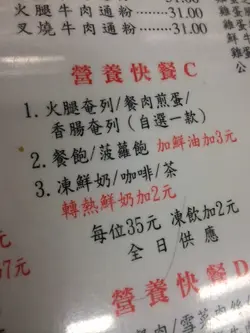 火腿牛肉通粉......31.00
叉燒牛肉通粉......31.00
營養快餐C
1. 火腿奄列/餐肉煎蛋/
香腸奄列（自選一款）
2. 餐飽/菠蘿飽 加鮮油加3元
3. 凍鮮奶/咖啡/茶
轉熱鮮奶加2元
每位35元 凍飲加2元
全日供應
加7元
營養快餐D